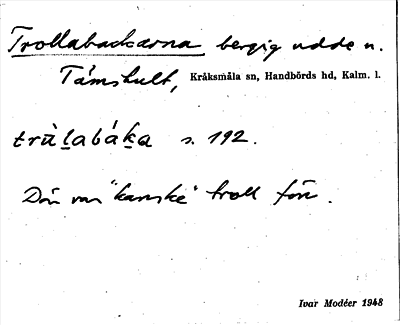 Trollabackarna bergig udde n.
Támshult, Kråksmåla sn, Handbörds hd, Kalm. l.
trùlabáka s. 192.
Där var "kanske" troll förr.
Ivar Modéer 1948